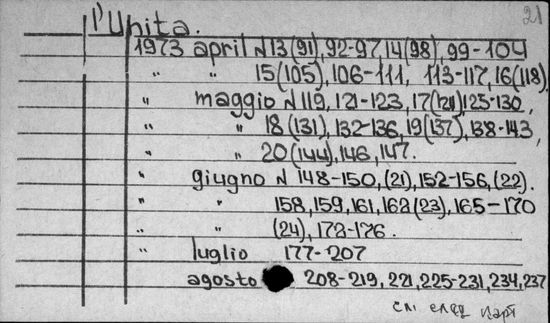 21
l'Unita.
1973 april N 13(91), 92-97, 14(98), 99-104
" " 15(105), 106-111, 113-117, 16(118).
" maggio N 119, 121-123, 17(124), 125-130,
" " 18(131), 132-136, 19(137), 138-143,
" " 20(144), 146, 147.
" giugno N 148-150, (21), 152-156, (22).
" " 158, 159, 161, 162(23), 165-170
" " (24), 172-176.
" luglio 177-207
agosto 208-219, 221, 225-231, 234, 237
см. след карт